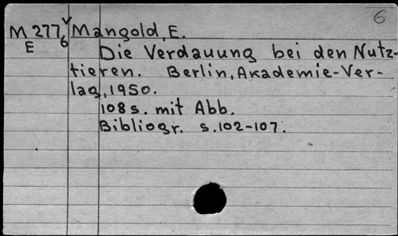 6
M 277 v Mangold, E.
E 6
Die Verdauung bei den Nutz-
tieren. Berlin, Akademie-Ver-
lag, 1950.
108 s. mit Abb.
Bibliogr. s. 102-107.